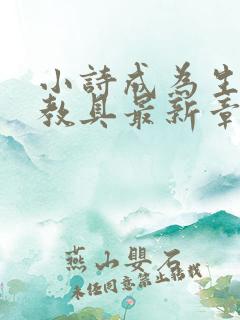 小詩成為生
教具最新章
燕山嬰石
未經同意禁止轉載